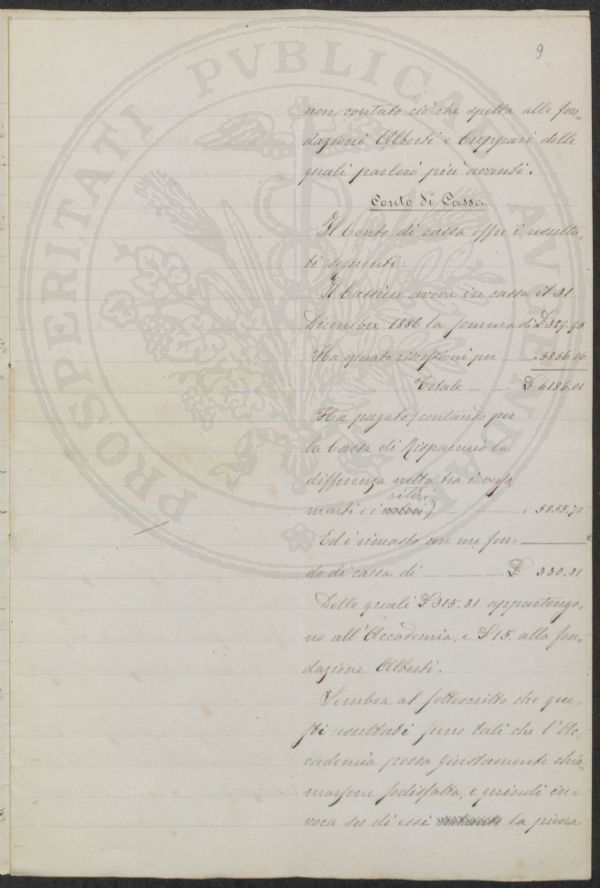 9
PROSPERITATI PVBLICAE AVGENDAE
non contato ciò che spetta alle fon-
dazioni Alberti e Cuppari delle
quali parlerò più avanti.
Conto di Cassa
Il Conto di cassa offre i resulta-
ti seguenti:
Il Cassiere aveva in cassa al 31
Dicembre 1886 la somma di £ 329.95
Ha operato riscossioni per — „ 5856.06
Totale — £ 6186.01
Ha pagato (contando per
la Cassa di Risparmio la
differenza netta tra i versa
menti e i ritiri) — „ 5855.70
Ed è rimasto con un fon-
do di cassa di — £ 330.31
Delle quali £ 315.31 appartengo-
no all'Accademia, e £ 15. alla fon-
dazione Alberti.
Sembra al sottoscritto che que-
sti resultati sieno tali che l'Ac-
cademia possa giustamente chia-
marsene sodisfatta, e quindi in-
voca su di essi la piena